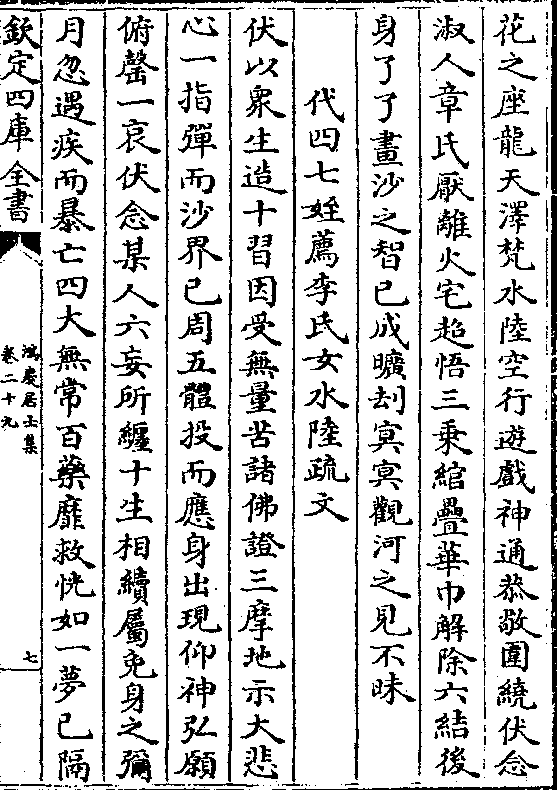 花之座龍天澤梵水陸空行遊戲神通恭敬圍繞伏念
淑人章氏厭離火宅超悟三乘綰疊華巾解除六結後
身了了畫沙之智已成曠刦寞寞觀河之見不昧
代四七姪薦李氏女水陸疏文
伏以衆生造十習因受無量苦諸佛證三摩地示大悲
心一指彈而沙界已周五體投而應身出現仰神弘願
俯罄一哀伏念某人六妄所纏十生相續屬免身之彌
月忽遇疾而暴亡四大無常百藥靡救恍如一夢已隔
欽定四庫全書
鴻慶居士集
卷二十九
七